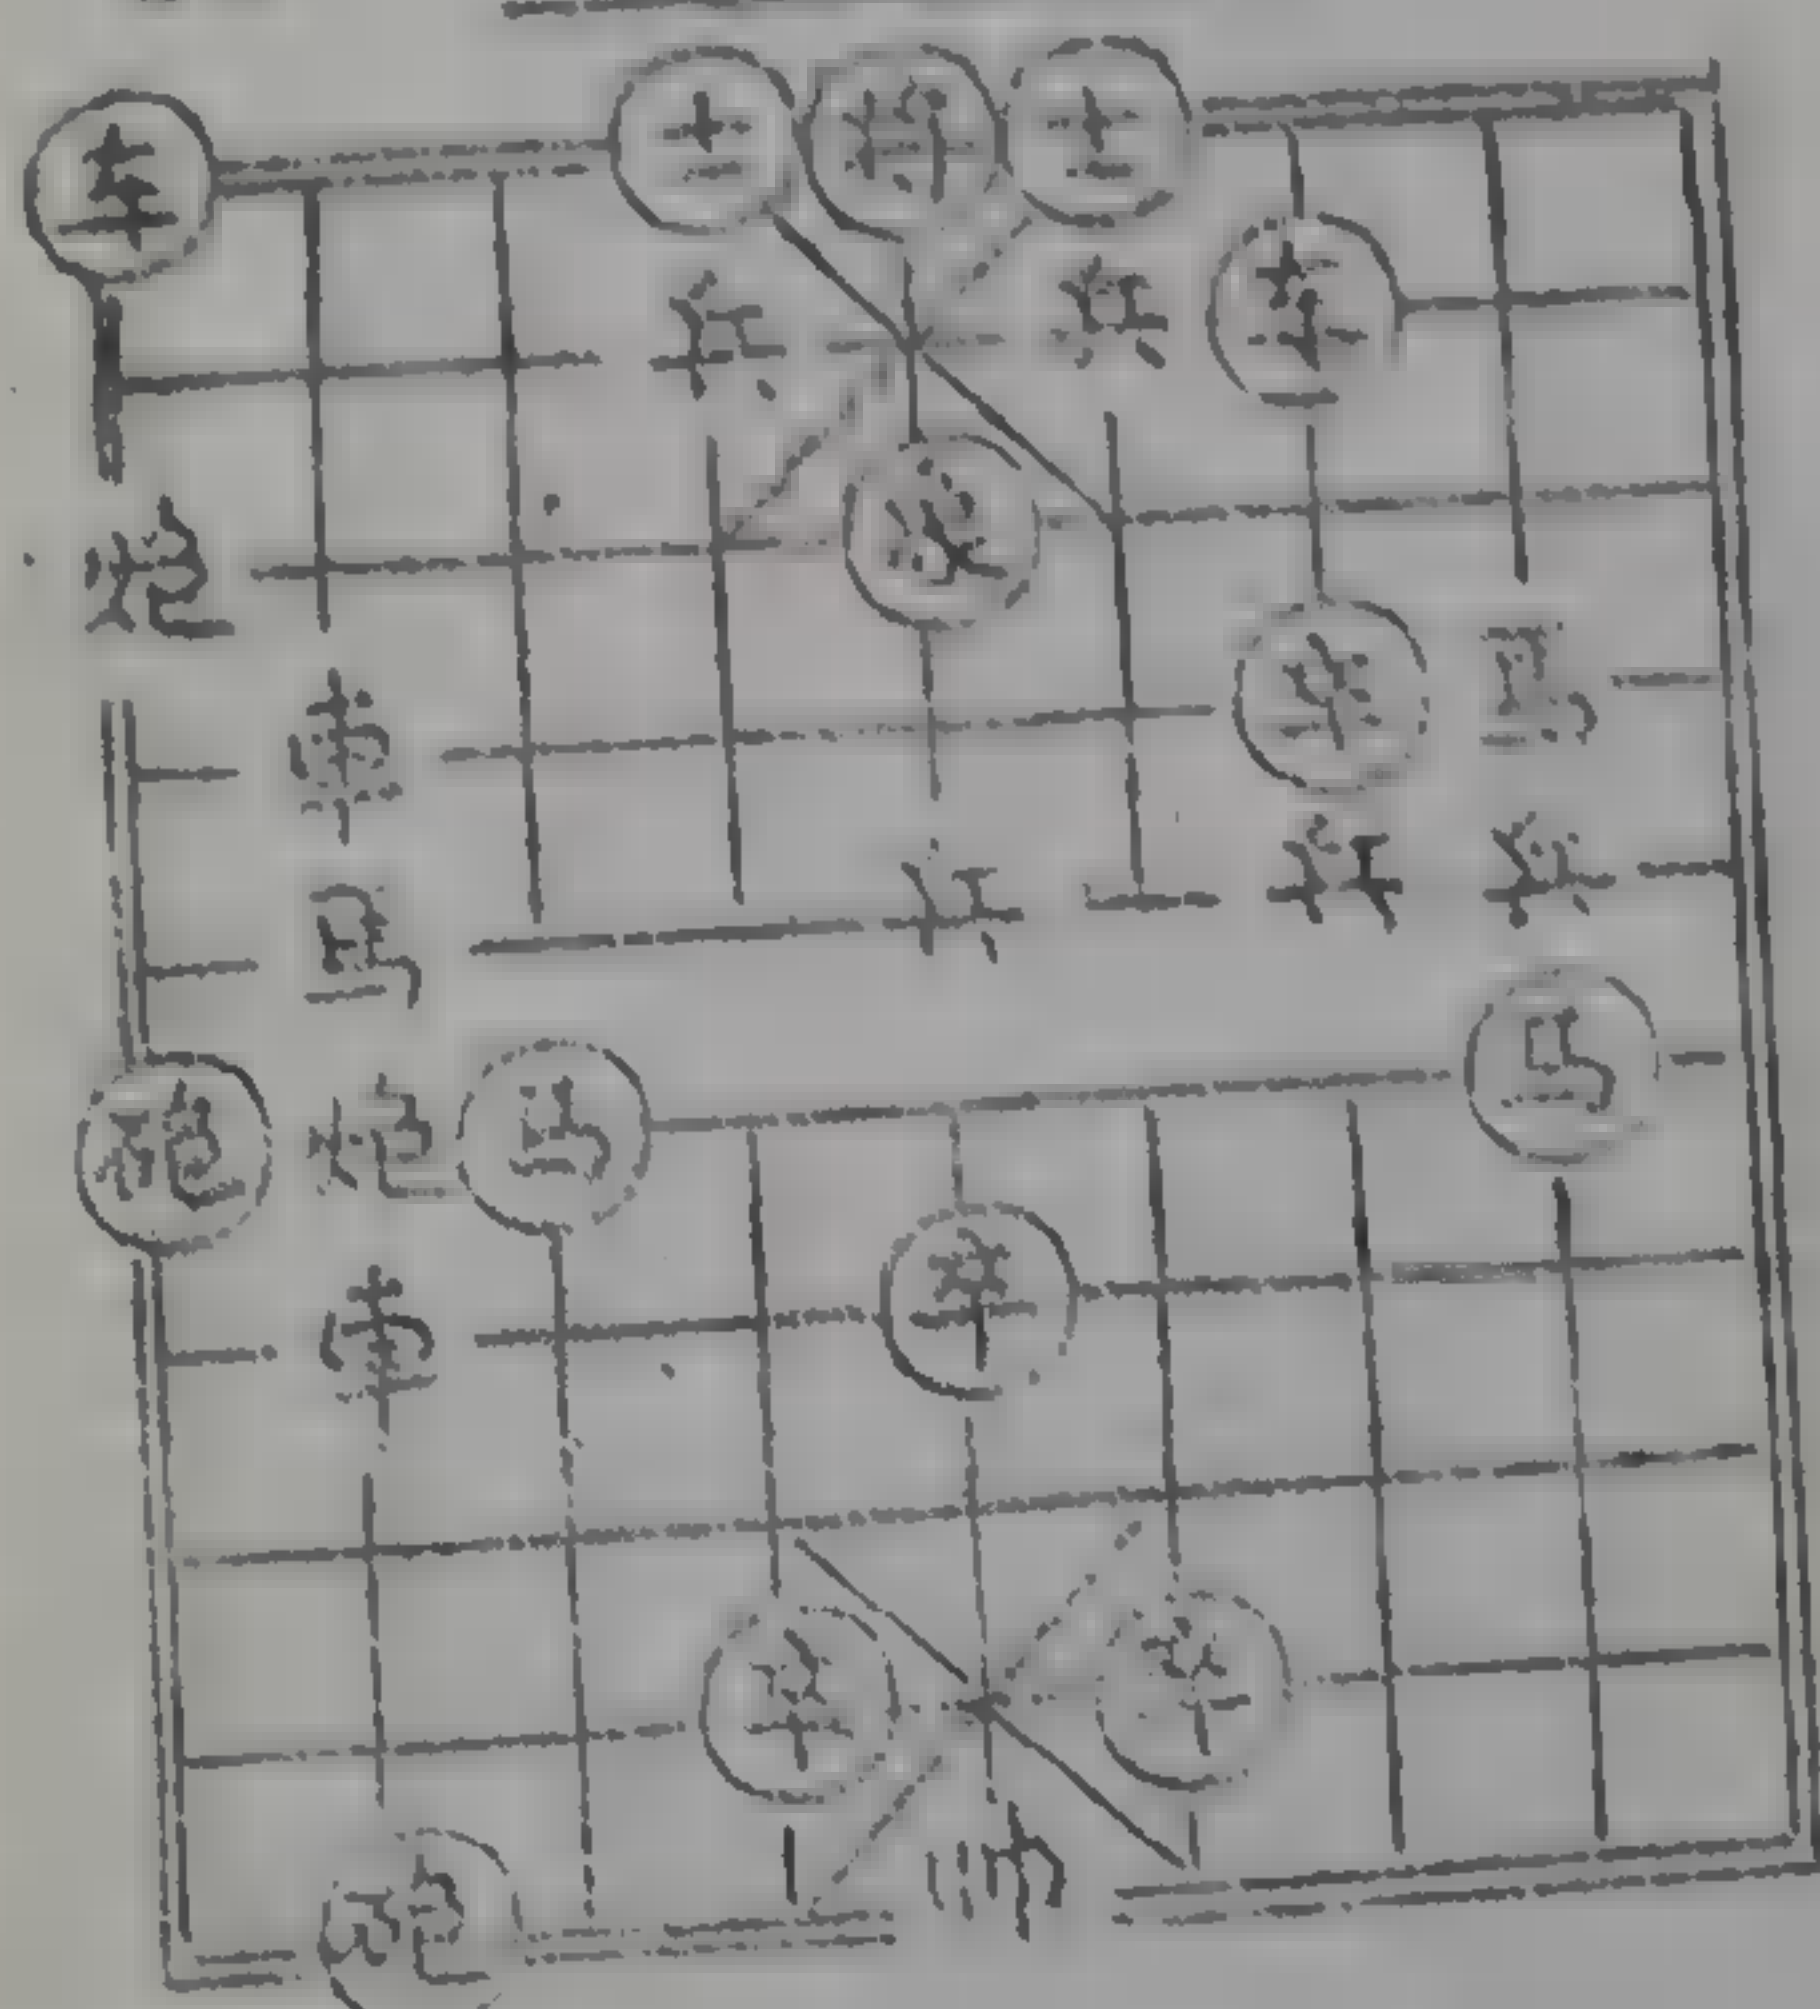 车 士 将 士
兵 兵 车
炮 象
車 卒 马
马 兵 兵 兵
砲 炮 马 马
車 卒
卒 卒
砲 帅